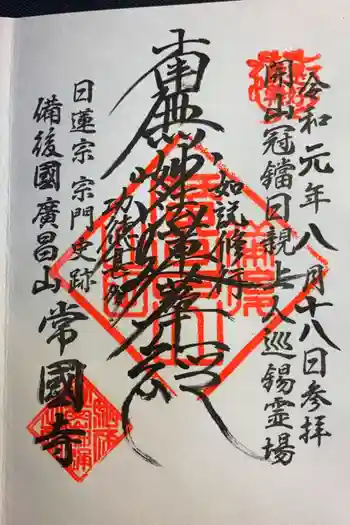 令和元年八月十八日参拝
開山冠鐺日親上人巡錫霊場
如説修行
南無妙法蓮華経
功徳甚多
日蓮宗 宗門史跡
備後國廣昌山 常國寺